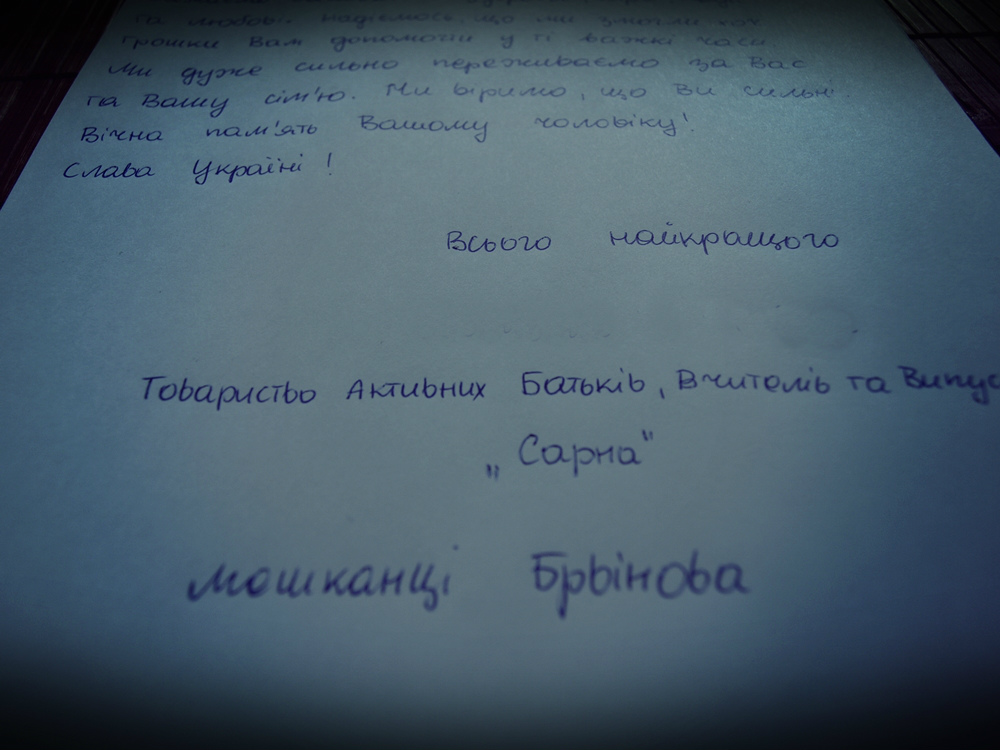 та любові надіємось, що ми змогли хоч
трошки Вам допомогти у ті важкі часи
Ми дуже сильно переживаємо за Вас
та Вашу сім'ю. Ми віримо, що Ви сильні.
Вічна пам'ять Вашому чоловіку!
Слава Україні!
Всього найкращого
Товариство Активних Батьків, Вчителів та Випус
„Сарна"
мошканці Брьінова